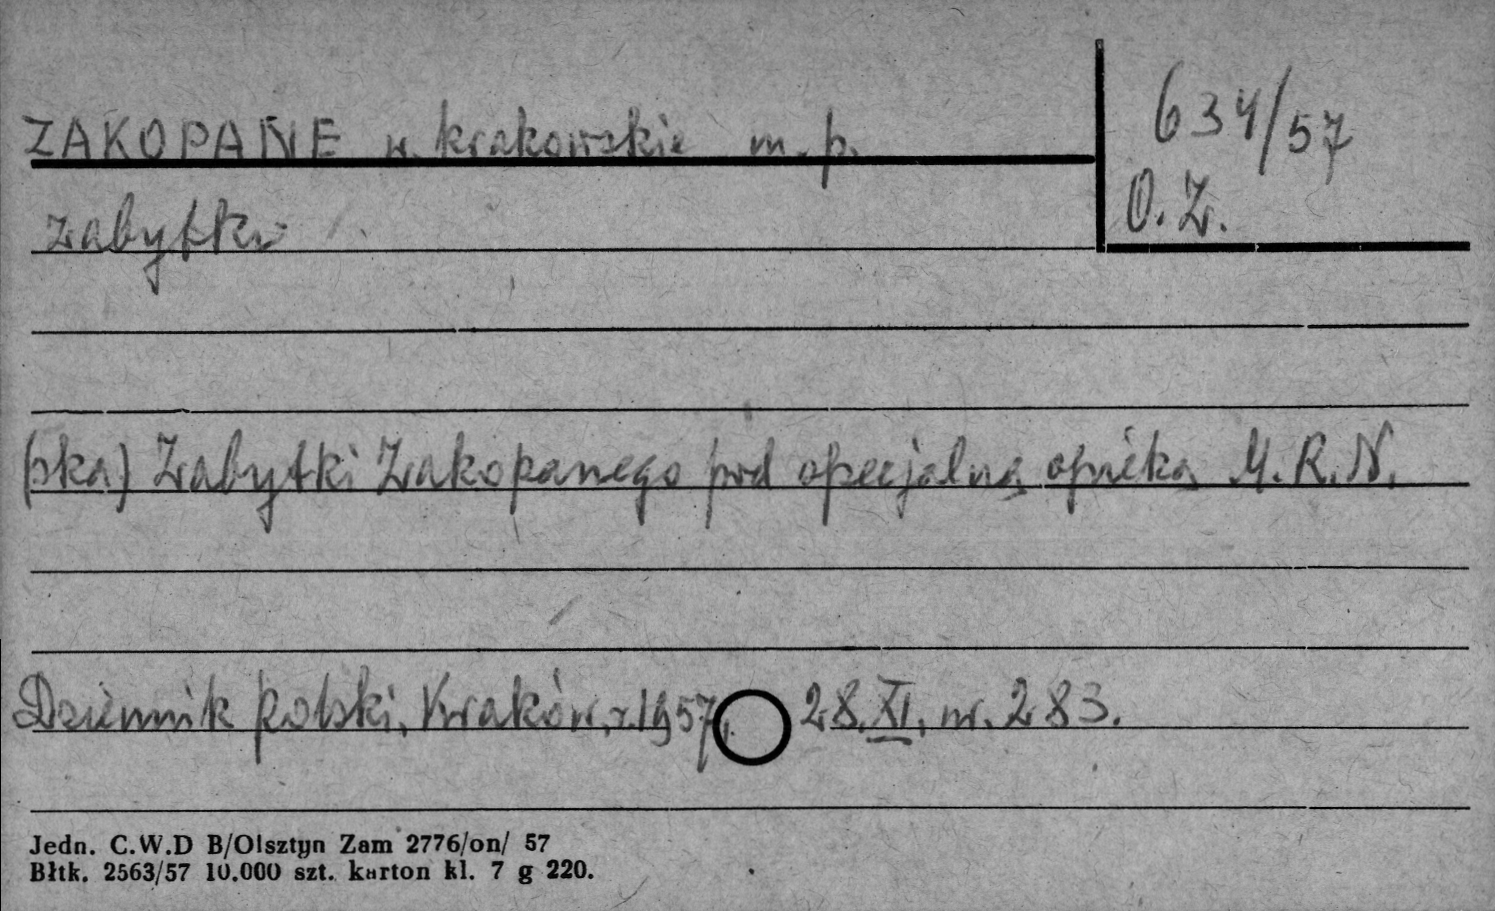 ZAKOPANE w. krakowskie m. p.
634/57
O. Z.
zabytki
(ska) Zabytki Zakopanego pod specjalną opieką M. R. N.
Dziennik polski, Kraków, r. 1957, 28. XI, nr. 283.
Jedn. C.W.D B/Olsztyn Zam 2776/on/ 57
Błtk. 2563/57 10.000 szt. karton kl. 7 g 220.